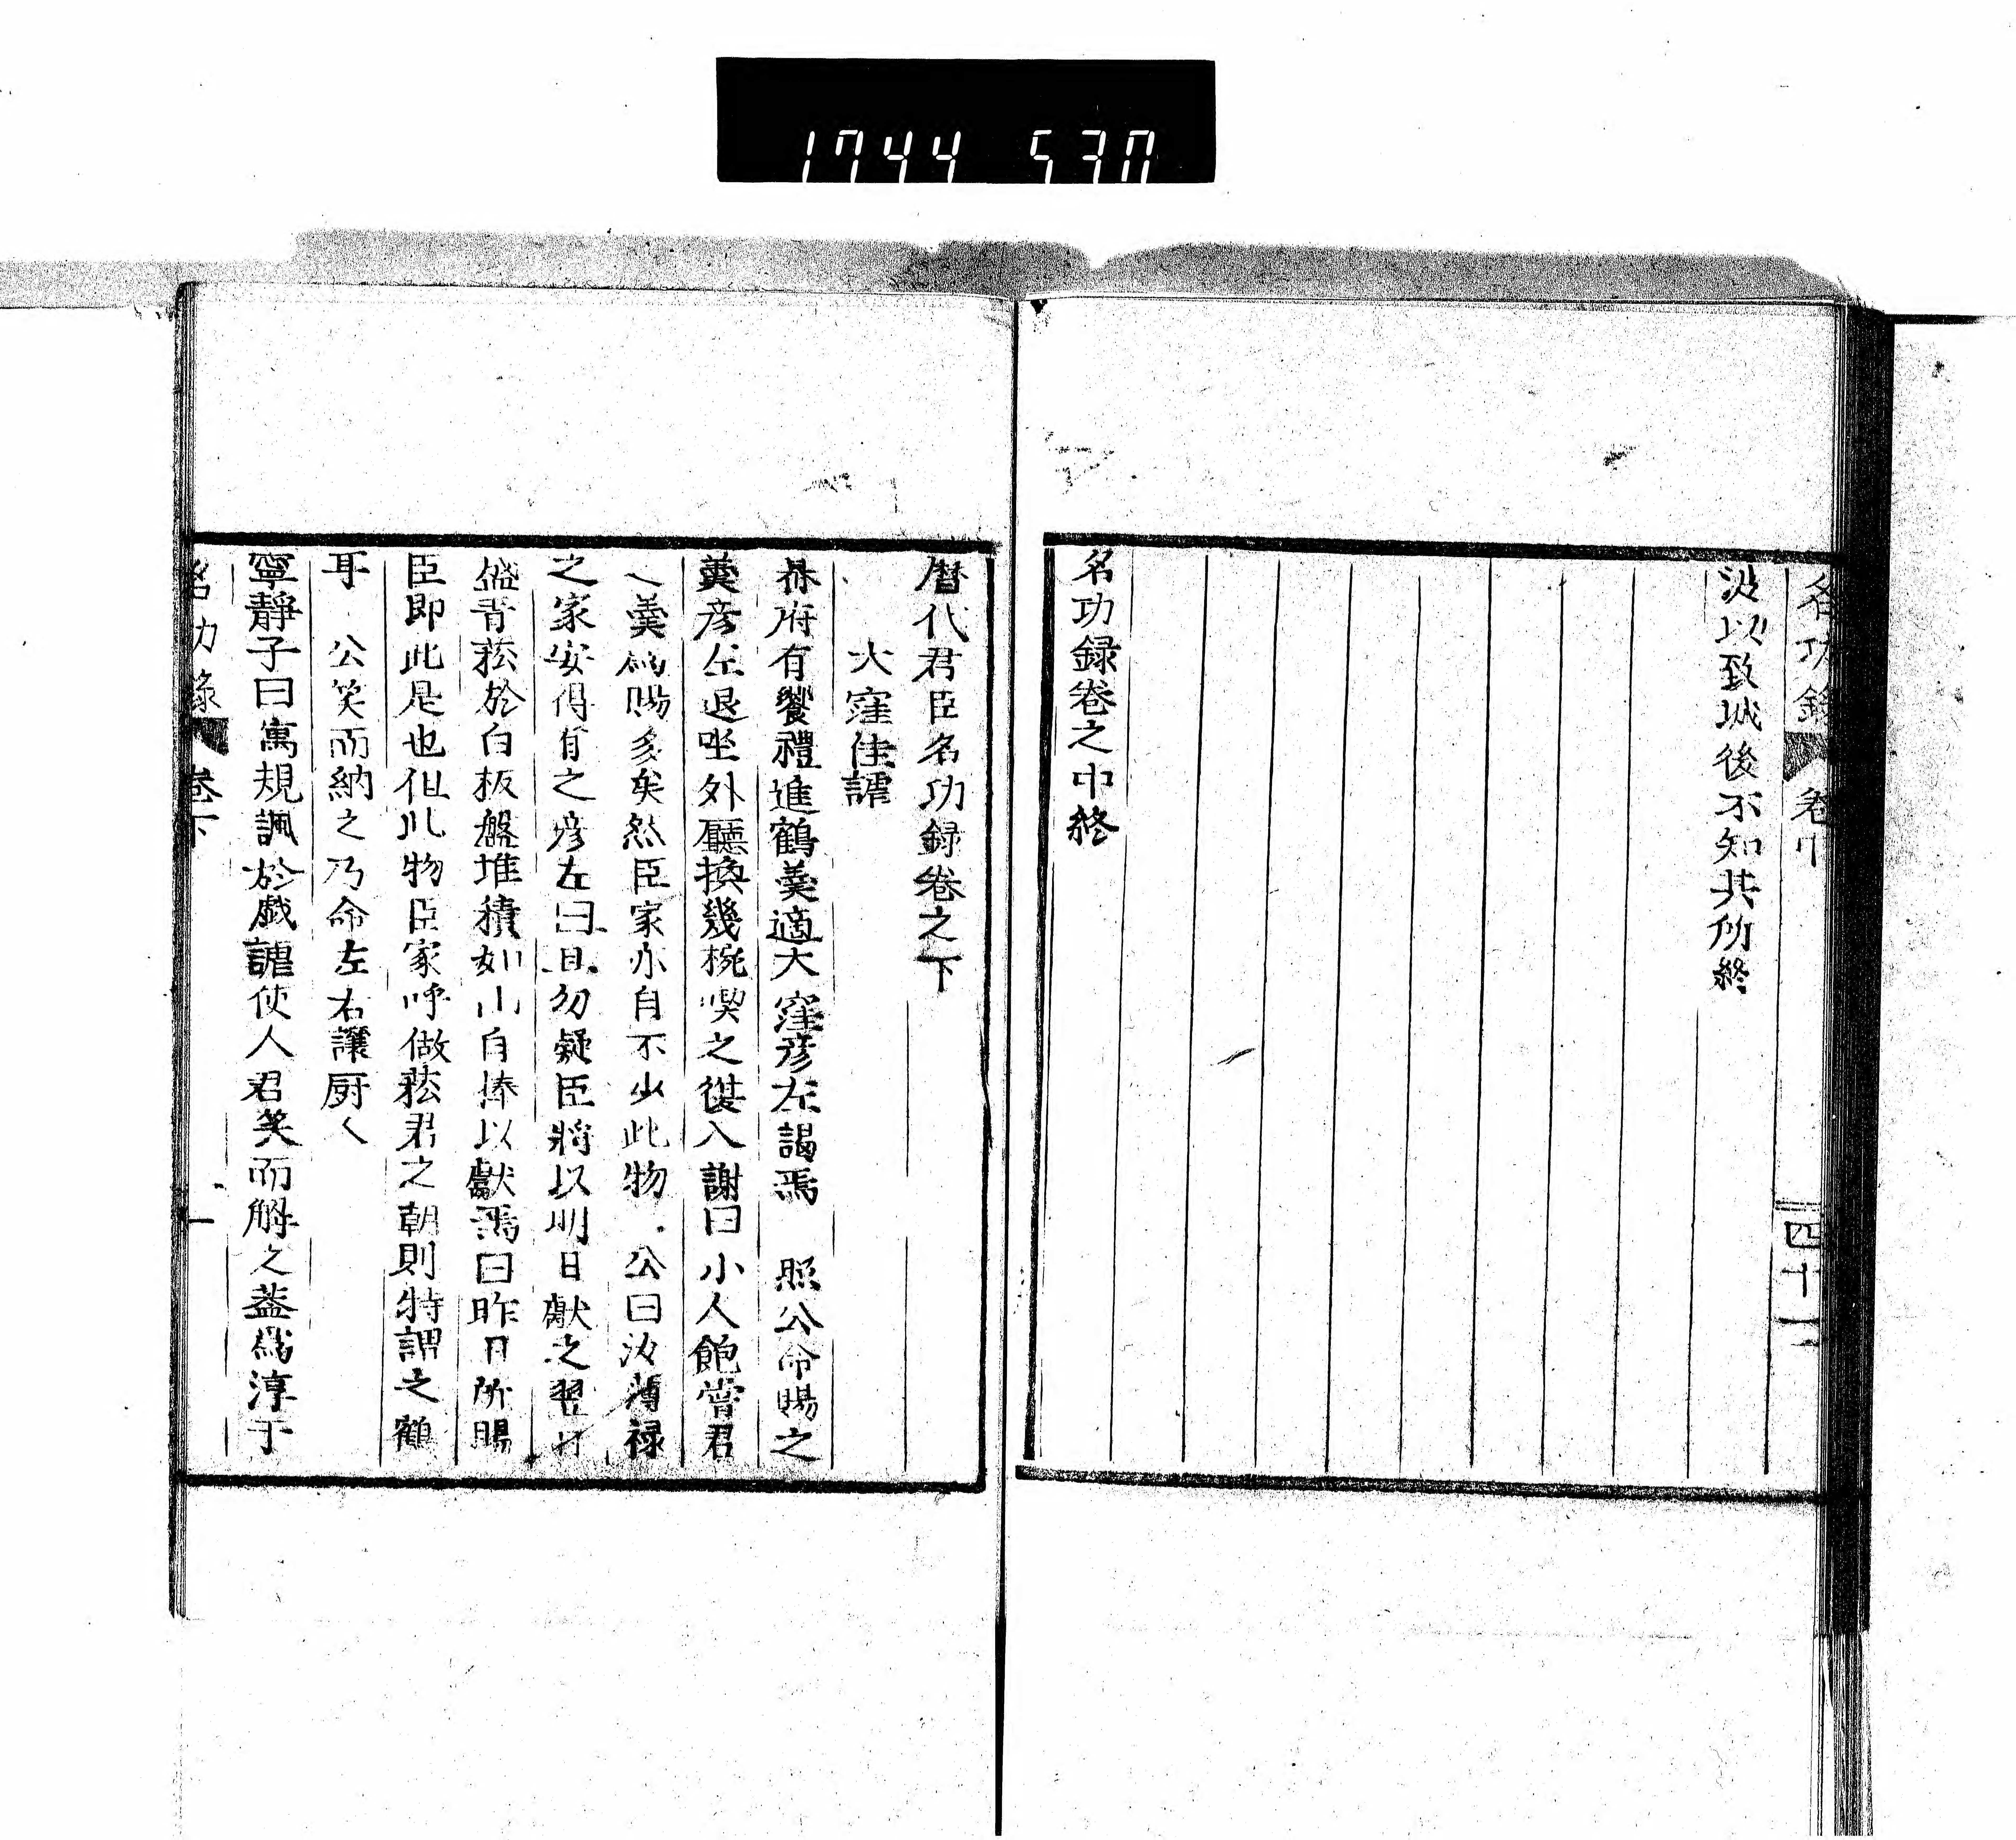 1744 530
名功録 卷中 四十二
汝以致城後不知其所終
名功録卷之中終
暦代君臣名功録卷之下
大窪佳謔
幕府有饗禮進鶴羹適大窪彦左謁焉 照公命賜之
羹彦左退坐外廳換幾椀喫之復入謝曰小人飽嘗君
之羹為賜多矣然臣家亦自不少此物 公曰汝薄禄
之家安得有之彦左曰且勿疑臣將以明日獻之翌日
盛青菘於白板盤堆積如山自捧以獻焉曰昨日所賜
臣即此是也但此物臣家呼做菘君之朝則特謂之鶴
耳 公笑而納之乃命左右讓厨人
寧靜子曰寓規諷於戯謔使人君笑而解之蓋為淳于
名功録 卷下 一